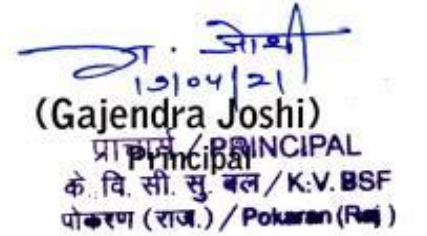 ग. जोशी
19/04/21
(Gajendra Joshi)
प्राचार्य / PRINCIPAL
Principal
के. वि. सी. सु. बल / K.V. BSF
पोकरण (राज.) / Pokaran (Raj)